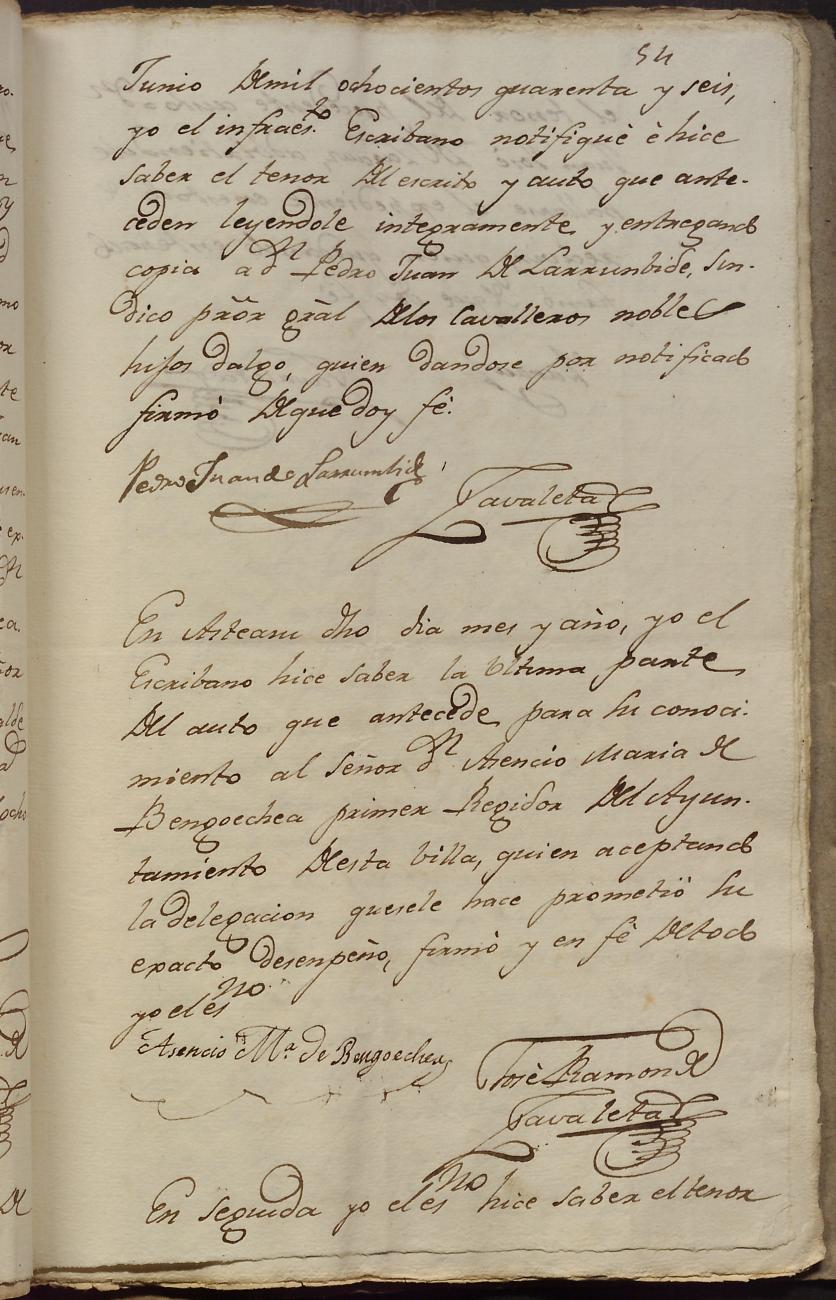 54
Junio de mil ochocientos quarenta y seis,
yo el infraes.to Escribano notifiquè è hice
saber el tenor del escrito y auto que ante-
ceden leyendole integramente, y entregando
copia a dn Pedro Juan de Larrunbide, Sin-
dico prõr grãl de los Cavalleros nobles
hijos dalgo, quien dandose por notificado
firmò de que doy fè.
Pedro Juan de Larrumbide
Zavaleta
En Asteasu dho dia mes y año, yo el
Escribano hice saber la ultima parte
del auto que antecede para su conoci-
miento al Señor dn Asencio Maria de
Bengoechea primer Regidor del Ayun-
tamiento de esta Villa, quien aceptando
la delegacion que se le hace prometiò su
exacto desenpeño, firmò y en fè de todo
yo el esno
Asencio Ma. de Bengoechea
Josè Ramon de
Zavaleta
En seguida yo el esno hice saber el tenor